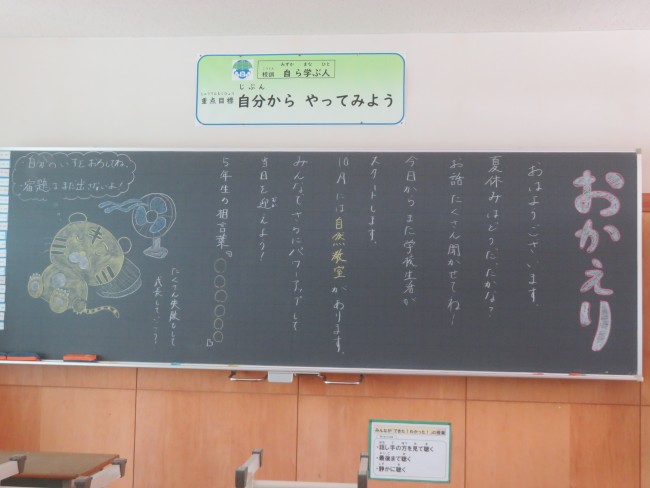 校訓 自ら学ぶ人
みずか まな ひと
重点目標 自分から やってみよう
じぶん
おかえり
おはようございます。
夏休みはどうだったかな？
お話たくさん聞かせてね！
今日からまた学校生活が
スタートします。
10月には自然教室があります。
みんなでさらにパワーアップして
当日を迎えよう！
5年生の相言葉『○○○○○○』
たくさん失敗をして
成長していこう！
自分のいすをおろしてね。
宿題はまだ出さないよ！
みんなが「できた！わかった！」の授業
・話し手の方を見て聴く
・最後まで聴く
・静かに聴く